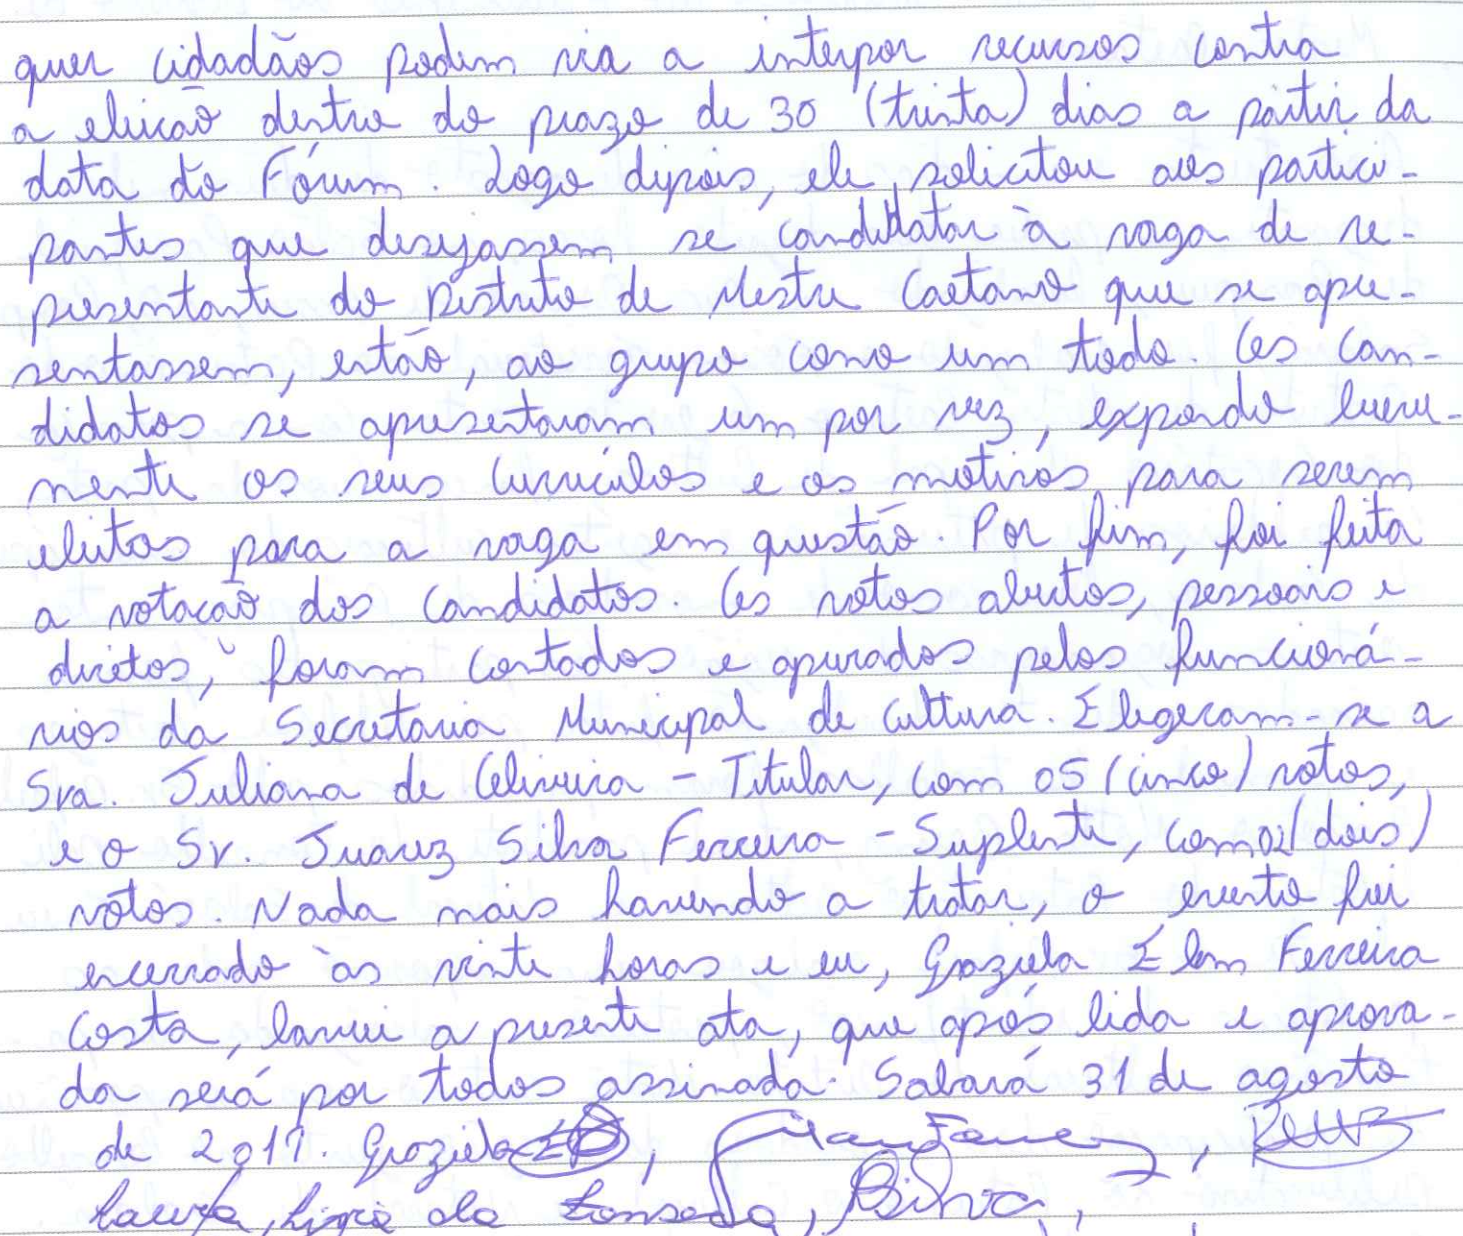 quer cidadãos podem via a interpor recursos contra
a eleição dentro do prazo de 30 (trinta) dias a partir da
data do Fórum. Logo depois, ele, solicitou aos partici-
pantes que desejassem se candidatar à vaga de re-
presentante do Distrito de Mestre Caetano que se apre-
sentassem, então, ao grupo como um todo. Os can-
didatos se apresentaram um por vez, expondo breve-
mente os seus currículos e os motivos para serem
eleitos para a vaga em questão. Por fim, foi feita
a votação dos candidatos. Os votos abertos, pessoais e
diretos, foram contados e apurados pelos funcioná-
rios da Secretaria Municipal de Cultura. Elegeram-se a
Sra. Juliana de Oliveira - Titular, com 05 (cinco) votos,
e o Sr. Juarez Silva Ferreira - Suplente, com 02 (dois)
votos. Nada mais havendo a tratar, o evento foi
encerrado às vinte horas e eu, Graziela Elem Ferreira
Costa, lavrei a presente ata, que após lida e aprova-
da será por todos assinada. Sabará 31 de agosto
de 2017. Graziela
Ligia da Fonseca, Silva,